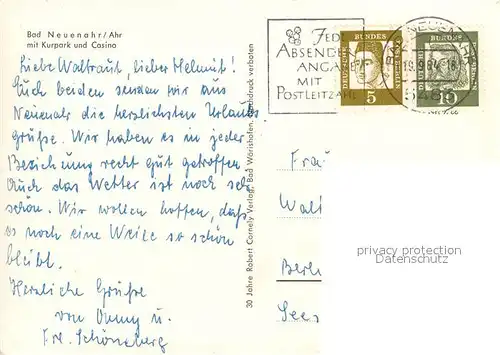 Bad Neuenahr/Ahr
mit Kurpark und Casino
Liebe Waltraut, lieber Helmut!
Euch beiden senden wir aus
Neuenahr die herzlichsten Urlaubs
grüße. Wir haben es in jeder
Beziehung recht gut getroffen
Auch das Wetter ist noch sehr
schön. Wir wollen hoffen, daß
es noch eine Weile so schön
bleibt.
Herzliche Grüße
von Omny u.
Frl. Schöneberg
30 Jahre Robert Cornely Verlag, Bad Wörishofen, Nachdruck verboten
ABSENDER
ANGA
MIT
POSTLEITZAHL
DEUTSCHE
BUNDES
5
DEUTSCHE
BUNDES
15
Frau
Walt
Berlin
See
privacy protection
Datenschutz